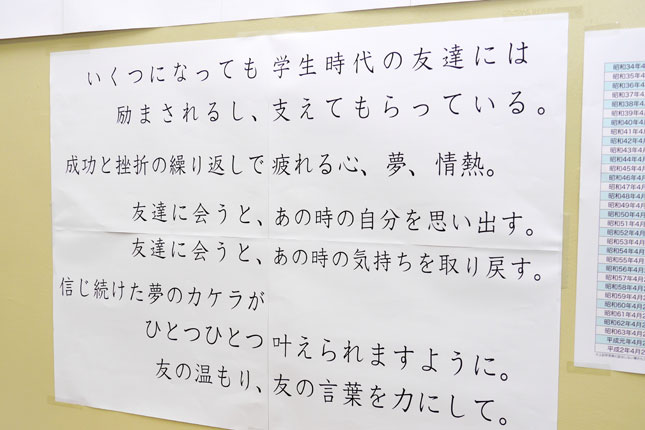 いくつになっても 学生時代の友達には
励まされるし、支えてもらっている。
成功と挫折の繰り返しで 疲れる心、夢、情熱。
友達に会うと、あの時の自分を思い出す。
友達に会うと、あの時の気持ちを取り戻す。
信じ続けた夢のカケラが
ひとつひとつ 叶えられますように。
友の温もり、友の言葉を力にして。
昭和34年4
昭和35年4
昭和36年4
昭和37年4
昭和38年4
昭和39年4
昭和40年4
昭和41年4
昭和42年4
昭和43年4
昭和44年4
昭和45年4
昭和46年4
昭和47年4
昭和48年4
昭和49年4
昭和50年4
昭和51年4
昭和52年4
昭和53年4
昭和54年4
昭和55年4
昭和56年4
昭和57年4
昭和58年4
昭和59年4
昭和60年4
昭和61年4
昭和62年4
昭和63年4
平成元年4
平成2年4